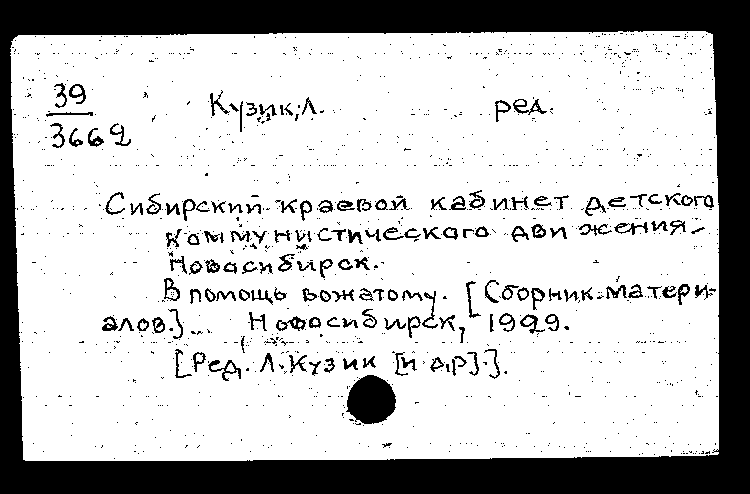 39
36692
Кузик, Л. ред.
Сибирский краевой кабинет детского
коммунистического движения.
Новосибирск.
В помощь вожатому. [Сборник матери-
алов.]... Новосибирск, 1929.
[Ред. Л. Кузик [и др].].